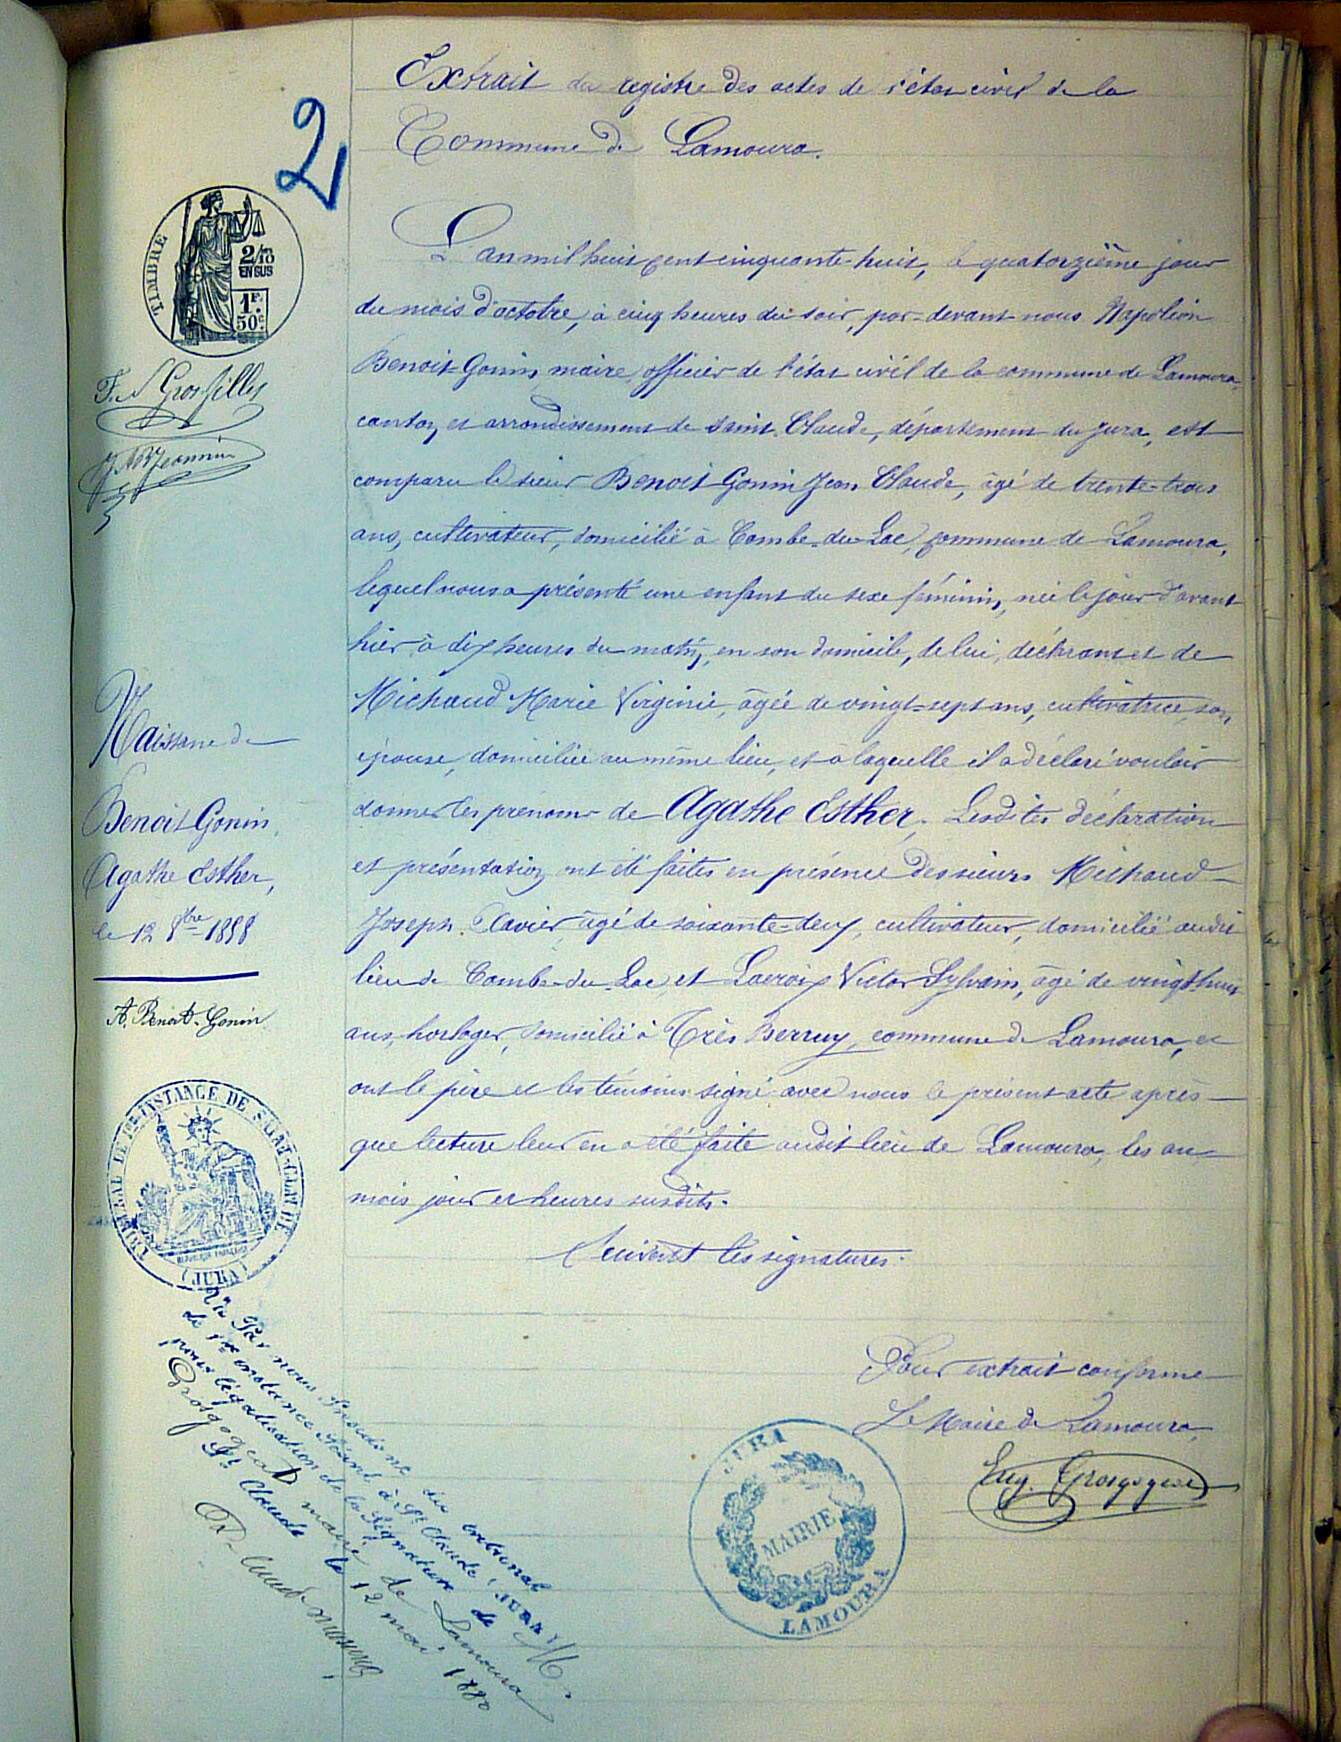 2
Extrait du registre des actes de l'état civil de la
Commune de Lamoura.
TIMBRE
2/10
EN SUS
1F.
50c
L'an mil huit cent cinquante-huit, le quatorzième jour
du mois d'octobre, à cinq heures du soir, par-devant nous Napoléon
Benoit-Gonin, maire, officier de l'état civil de la commune de Lamoura,
canton et arrondissement de Saint-Claude, département du Jura, est
comparu le sieur Benoit-Gonin Jean Claude, âgé de trente-trois
ans, cultivateur, domicilié à Combe-du-Lac, commune de Lamoura,
lequel nous a présenté une enfant du sexe féminin, née le jour d'avant
hier, à dix heures du matin, en son domicile, de lui, déclarant et de
Michaud Marie Virginie, âgée de vingt-sept ans, cultivatrice, son
épouse, domiciliée au même lieu, et à laquelle il a déclaré vouloir
donner les prénoms de Agathe Esther. Lesdites déclaration
et présentation ont été faites en présence des sieurs Michaud
Joseph Xavier, âgé de soixante-deux, cultivateur, domicilié audit
lieu de Combe-du-Lac, et Lacroix Victor Sylvain, âgé de vingt-huit
ans, horloger, domicilié à Très Berruy, commune de Lamoura, et
ont le père et les témoins signé avec nous le présent acte après
que lecture leur en a été faite audit lieu de Lamoura, les an
mois jour et heures susdits.
Suivent les signatures.
Pour extrait conforme
Le Maire de Lamoura,
Eug. Grosgogeat
JURA
MAIRIE
LAMOURA
F. Grosfilley
Jeannin
Naissance de
Benoit-Gonin,
Agathe Esther,
le 12 8bre 1858
A. Benoit-Gonin
TRIBUNAL DE 1re INSTANCE DE SAINT-CLAUDE
(JURA)
Vu Par nous Président du tribunal
de 1re instance séant à St Claude (JURA)
pour légalisation de la signature de M.
Grosgogeat maire de Lamoura
St Claude le 12 mai 1880